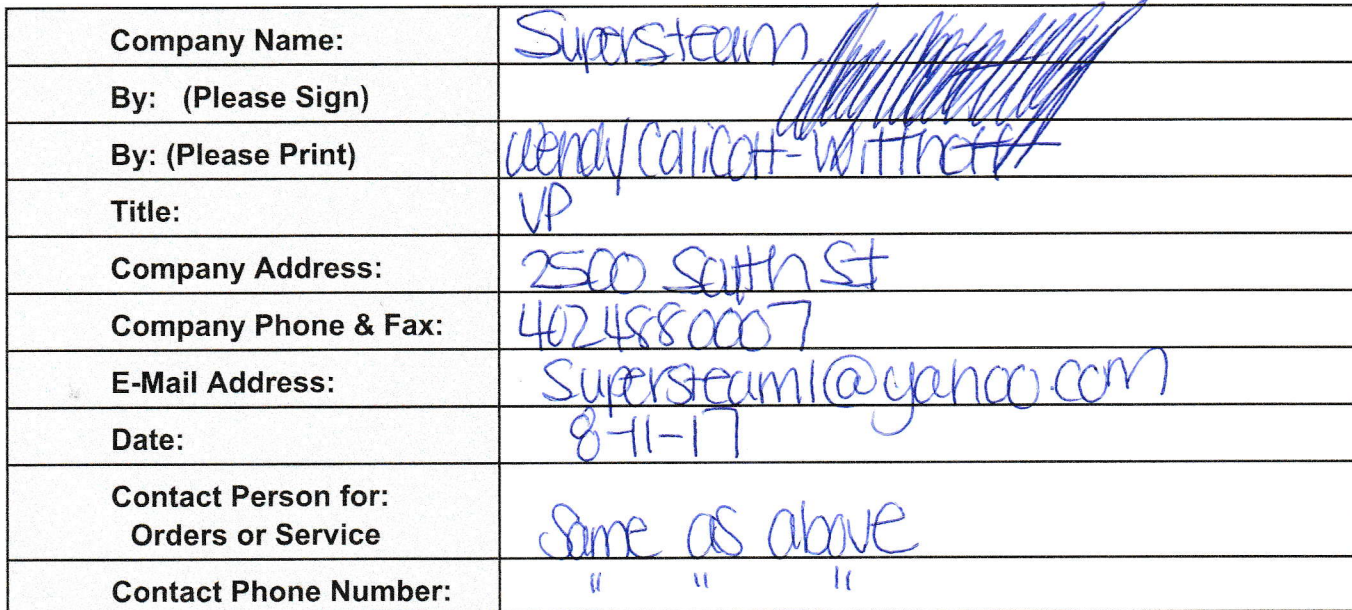 Company Name: Supersteam
By: (Please Sign)
By: (Please Print) Wendy Calicott-Witthoft
Title: VP
Company Address: 2500 South St
Company Phone & Fax: 4024880007
E-Mail Address: Supersteam1@yahoo.com
Date: 8-11-17
Contact Person for:
Orders or Service Same as above
Contact Phone Number: " " "